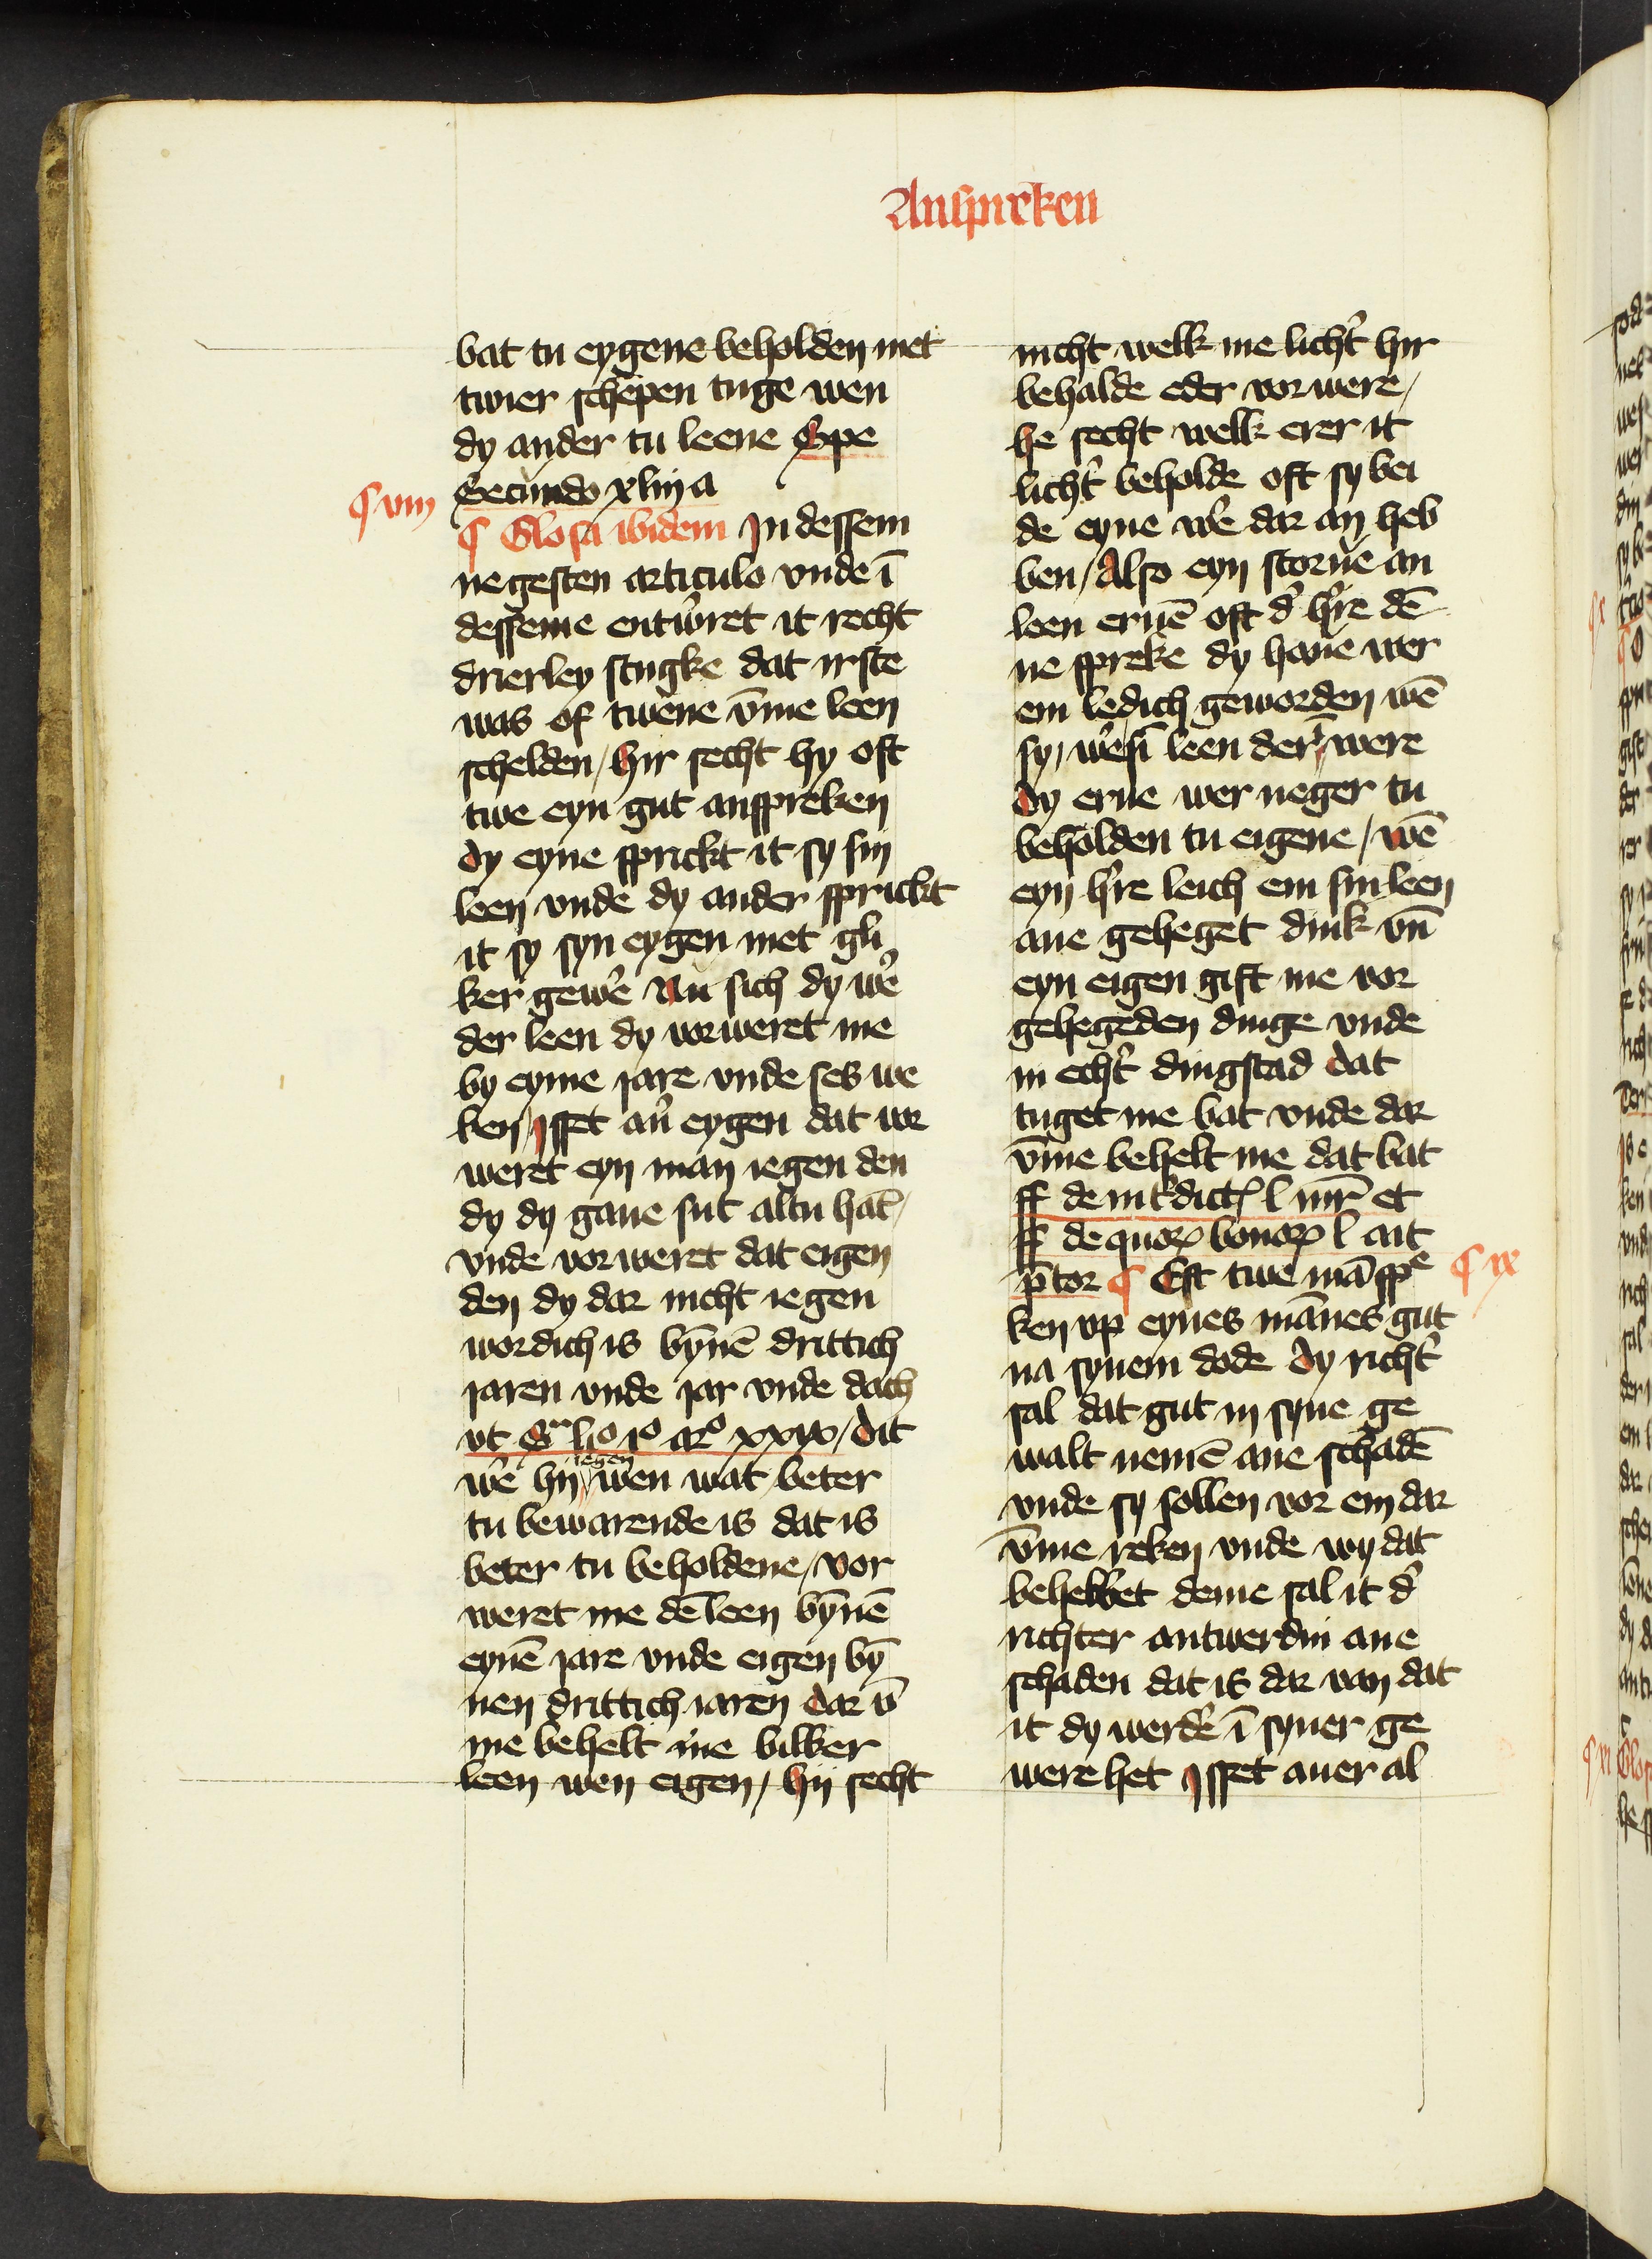 Anspreken
bat tu eygene beholden met
twier schepen tuge wen
dy ander tu leene Spe
Secundo xliiij a
¶ viij
¶ Glosa ibidem In dessem
negesten articulo vnde ī
desseme entw̉ret it recht
drierley stugke dat irste
was of twene v̄me leen
schelden / hir secht hy oft
twe eyn gut anspreken
dy eyne sprickt it sy sin
leen vnde dy ander sprickt
it sy syn eygen met gli
ker gewe̓ Nu sich dy we̓
der leen dy vorweret me
by eyme iare vnde ses we
ken Isset au̓ eygen dat vor
weret eyn man iegen den
dy dy gaue sut altu hat /
vnde vorweret dat eigen
den dy dar nicht iegen
wordich is bȳnē drittich
iaren vnde iar vnde dach
vt S lio io aro xxix / dit
we̓ hij iegen wen wat beter
tu bewarende is dat is
beter tu beholdene / vor
weret me dē leen bȳnē
eynē iare vnde eigen bȳ
nen drittich iaren dar v̄
me behelt me bilker
leen wen eigen / hij secht
nicht welk me licht̓ hir
behalde eder vorwere /
he secht welk erer it
licht̓ beholde oft sy bei
de eyne we̓ dar an heb
ben / Also eyn storue̓ an
leen eruē oft d̓ h̓re dē
ne spreke dy haue wer
em ledich geworden wē
sy / we̓ sī leen der were
dy erue wer neger tu
beholden tu eigene / wē
eyn h̓re leich em sin leen
ane geheget dink vn̄
eyn eigen gift me vor
gehegeden dinge vnde
in echt̓ dingstad dat
tuget me bat vnde dar
v̄me behelt me dat bat
ff de int̓dict l iiir et
ff de quorꝝ bonorꝝ l ait
p̄tor ¶ Eft twe mā spe
¶ ix
ken vp eynes mānes gut
na synem dode dy richt̓
sal dat gut in syne ge
walt nemē ane schadē
vnde sy sollen vor em dar
v̄me reken vnde wy dat
behebbet deme sal it d̓
richter antwerdin ane
schaden dat is dar van dat
it dy werde̓ ī syner ge
were het Isset auer al